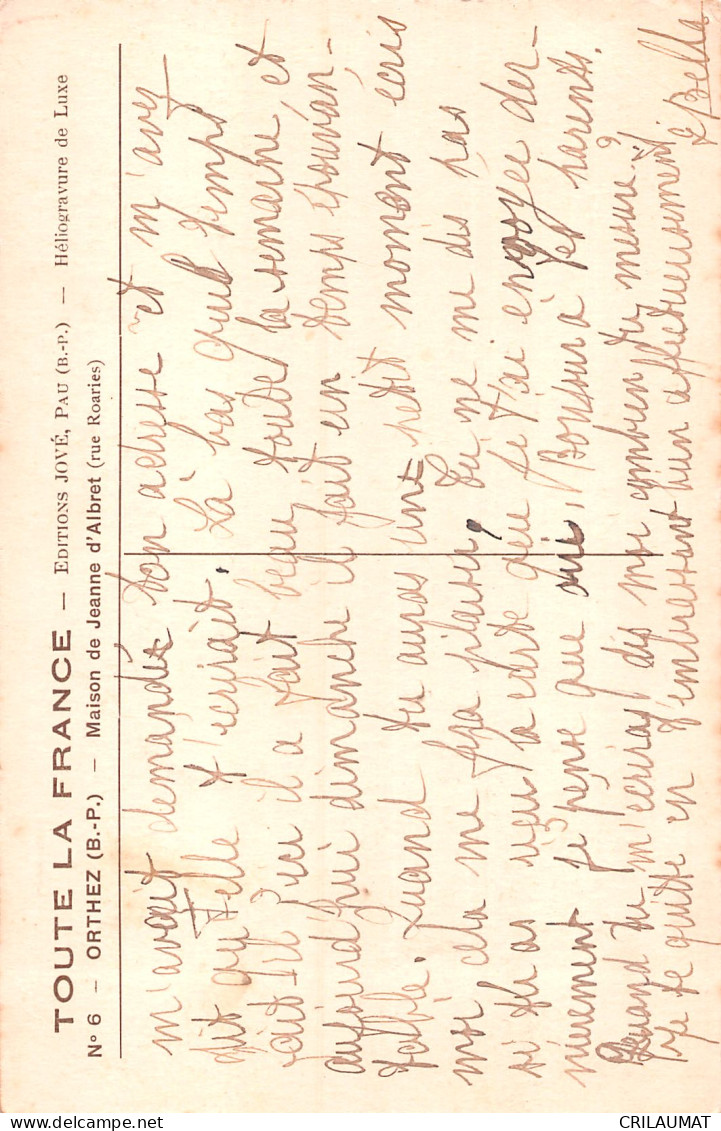 TOUTE LA FRANCE — EDITIONS JOVÉ, PAU (B.-P.) — Héliogravure de Luxe
N° 6 — ORTHEZ (B.-P.) — Maison de Jeanne d'Albret (rue Roaries)
m'avait demandé ton adresse et m'avez
dit qu'elle t'écrirait. Là bas quel temps
fait-il ? ici il a fait beau toute la semaine, et
aujourd'hui dimanche il fait un temps épouvan-
table. Quand tu auras un petit moment écris
moi, cela me fera plaisir, tu ne me dis pas
si tu as reçu la carte que je t'ai envoyée der-
nièrement je pense que oui. Bonjour à tes parents.
Quand tu m'écriras dis moi combien tu mesure ?
Je te quitte en t'embrassant bien affectueusement
Bella
CRILAUMAT